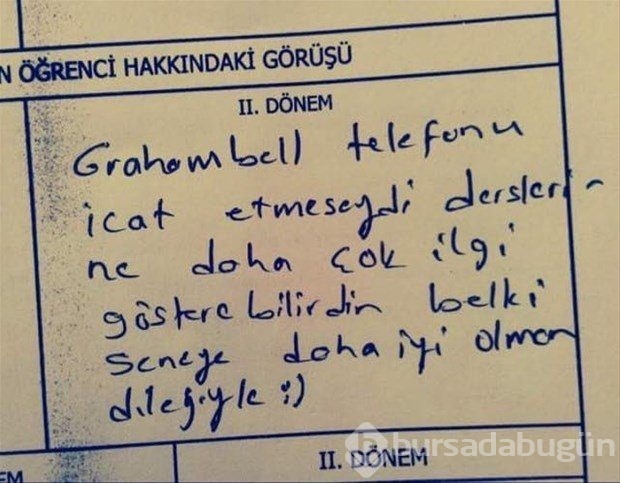 N ÖĞRENCİ HAKKINDAKİ GÖRÜŞÜ
II. DÖNEM
Grahambell telefonu
icat etmeseydi dersleri-
ne daha çok ilgi
gösterebilirdin belki
seneye daha iyi olman
dileğiyle :)
bursadabugün
EM
II. DÖNEM